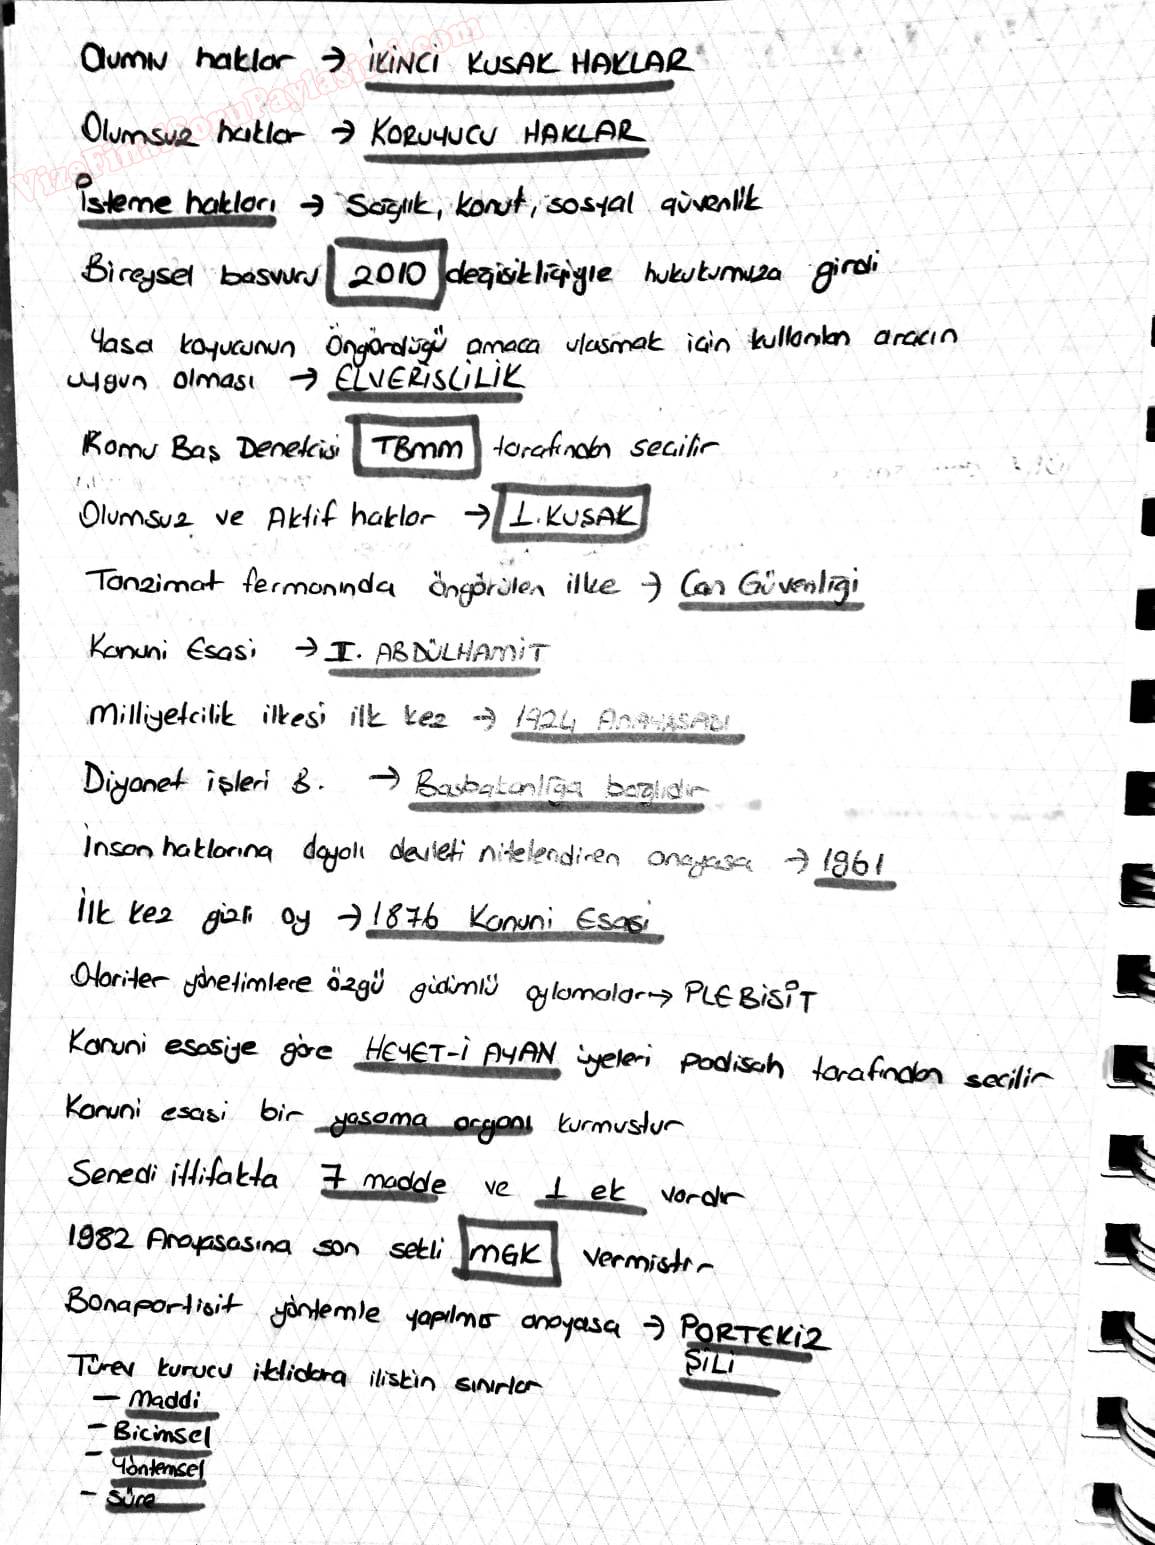 VizeFinalSoruPaylasimi.com
Olumlu haklar → İKİNCİ KUSAK HAKLAR
Olumsuz haklar → KORUYUCU HAKLAR
İsteme hakları → Sağlık, konut, sosyal güvenlik
Bireysel basvuru 2010 değisikliğiyle hukukumuza girdi
Yasa koyucunun Öngördüğü amaca ulasmak için kullanılan aracın
uygun olması → ELVERISLİLİK
Kamu Baş Denetcisi TBMM tarafından secilir
Olumsuz ve Aktif haklar → 1. KUSAK
Tanzimat fermanında öngörülen ilke → Can Güvenliği
Kanuni Esasi → II. ABDÜLHAMİT
Milliyetcilik ilkesi ilk kez → 1924 ANAYASASI
Diyanet işleri B. → Basbakanlığa bağlıdır
İnsan haklarına dayalı devleti nitelendiren anayasa → 1961
İlk kez gizli oy → 1876 Kanuni Esasi
Otoriter yönetimlere özgü güdümlü oylamalar → PLEBİSİT
Kanuni esasiye göre HEYET-İ AYAN üyeleri padisah tarafından secilir
Kanuni esasi bir yasama organı kurmustur
Senedi ittifakta 7 madde ve 1 ek vardır
1982 Anayasasına son sekli MGK vermistir
Bonapartisit yöntemle yapılmıs anayasa → PORTEKİZ
ŞİLİ
Türev kurucu iktidara iliskin sınırlar
— Maddi
– Bicimsel
– Yöntemsel
– Süre